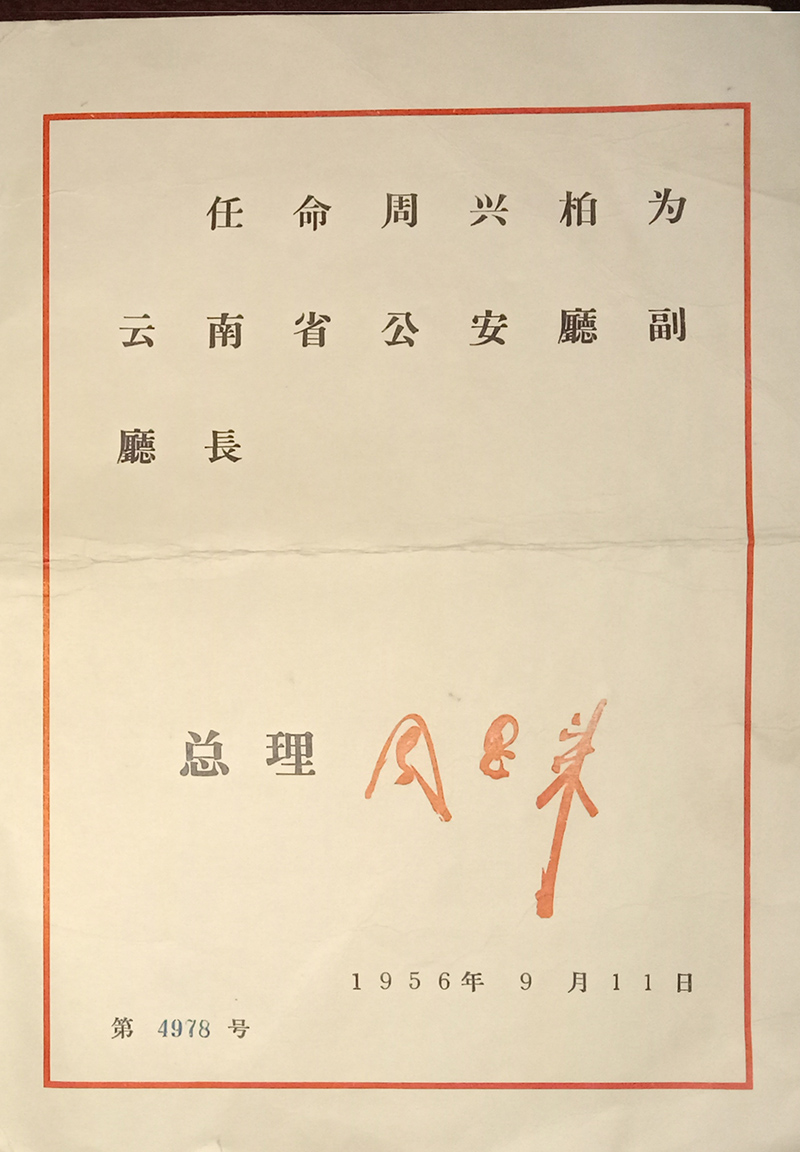 任命周兴柏为
云南省公安廳副
廳長
总理 周恩来
1956年9月11日
第4978号